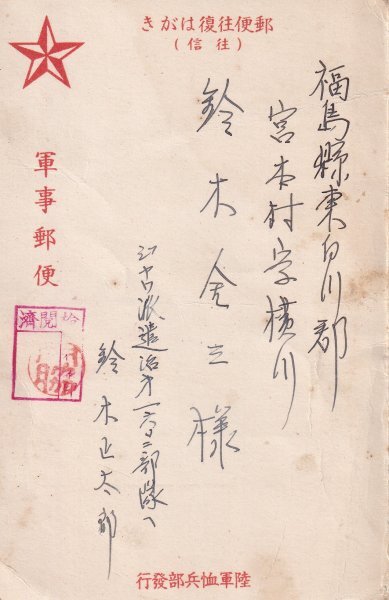 きがは復往便郵
(信往)
軍事郵便
福島縣東白川郡
宮本村字横川
鈴木
様
派遣治
部隊
鈴木正太郎
濟閲検
行發部兵恤軍陸